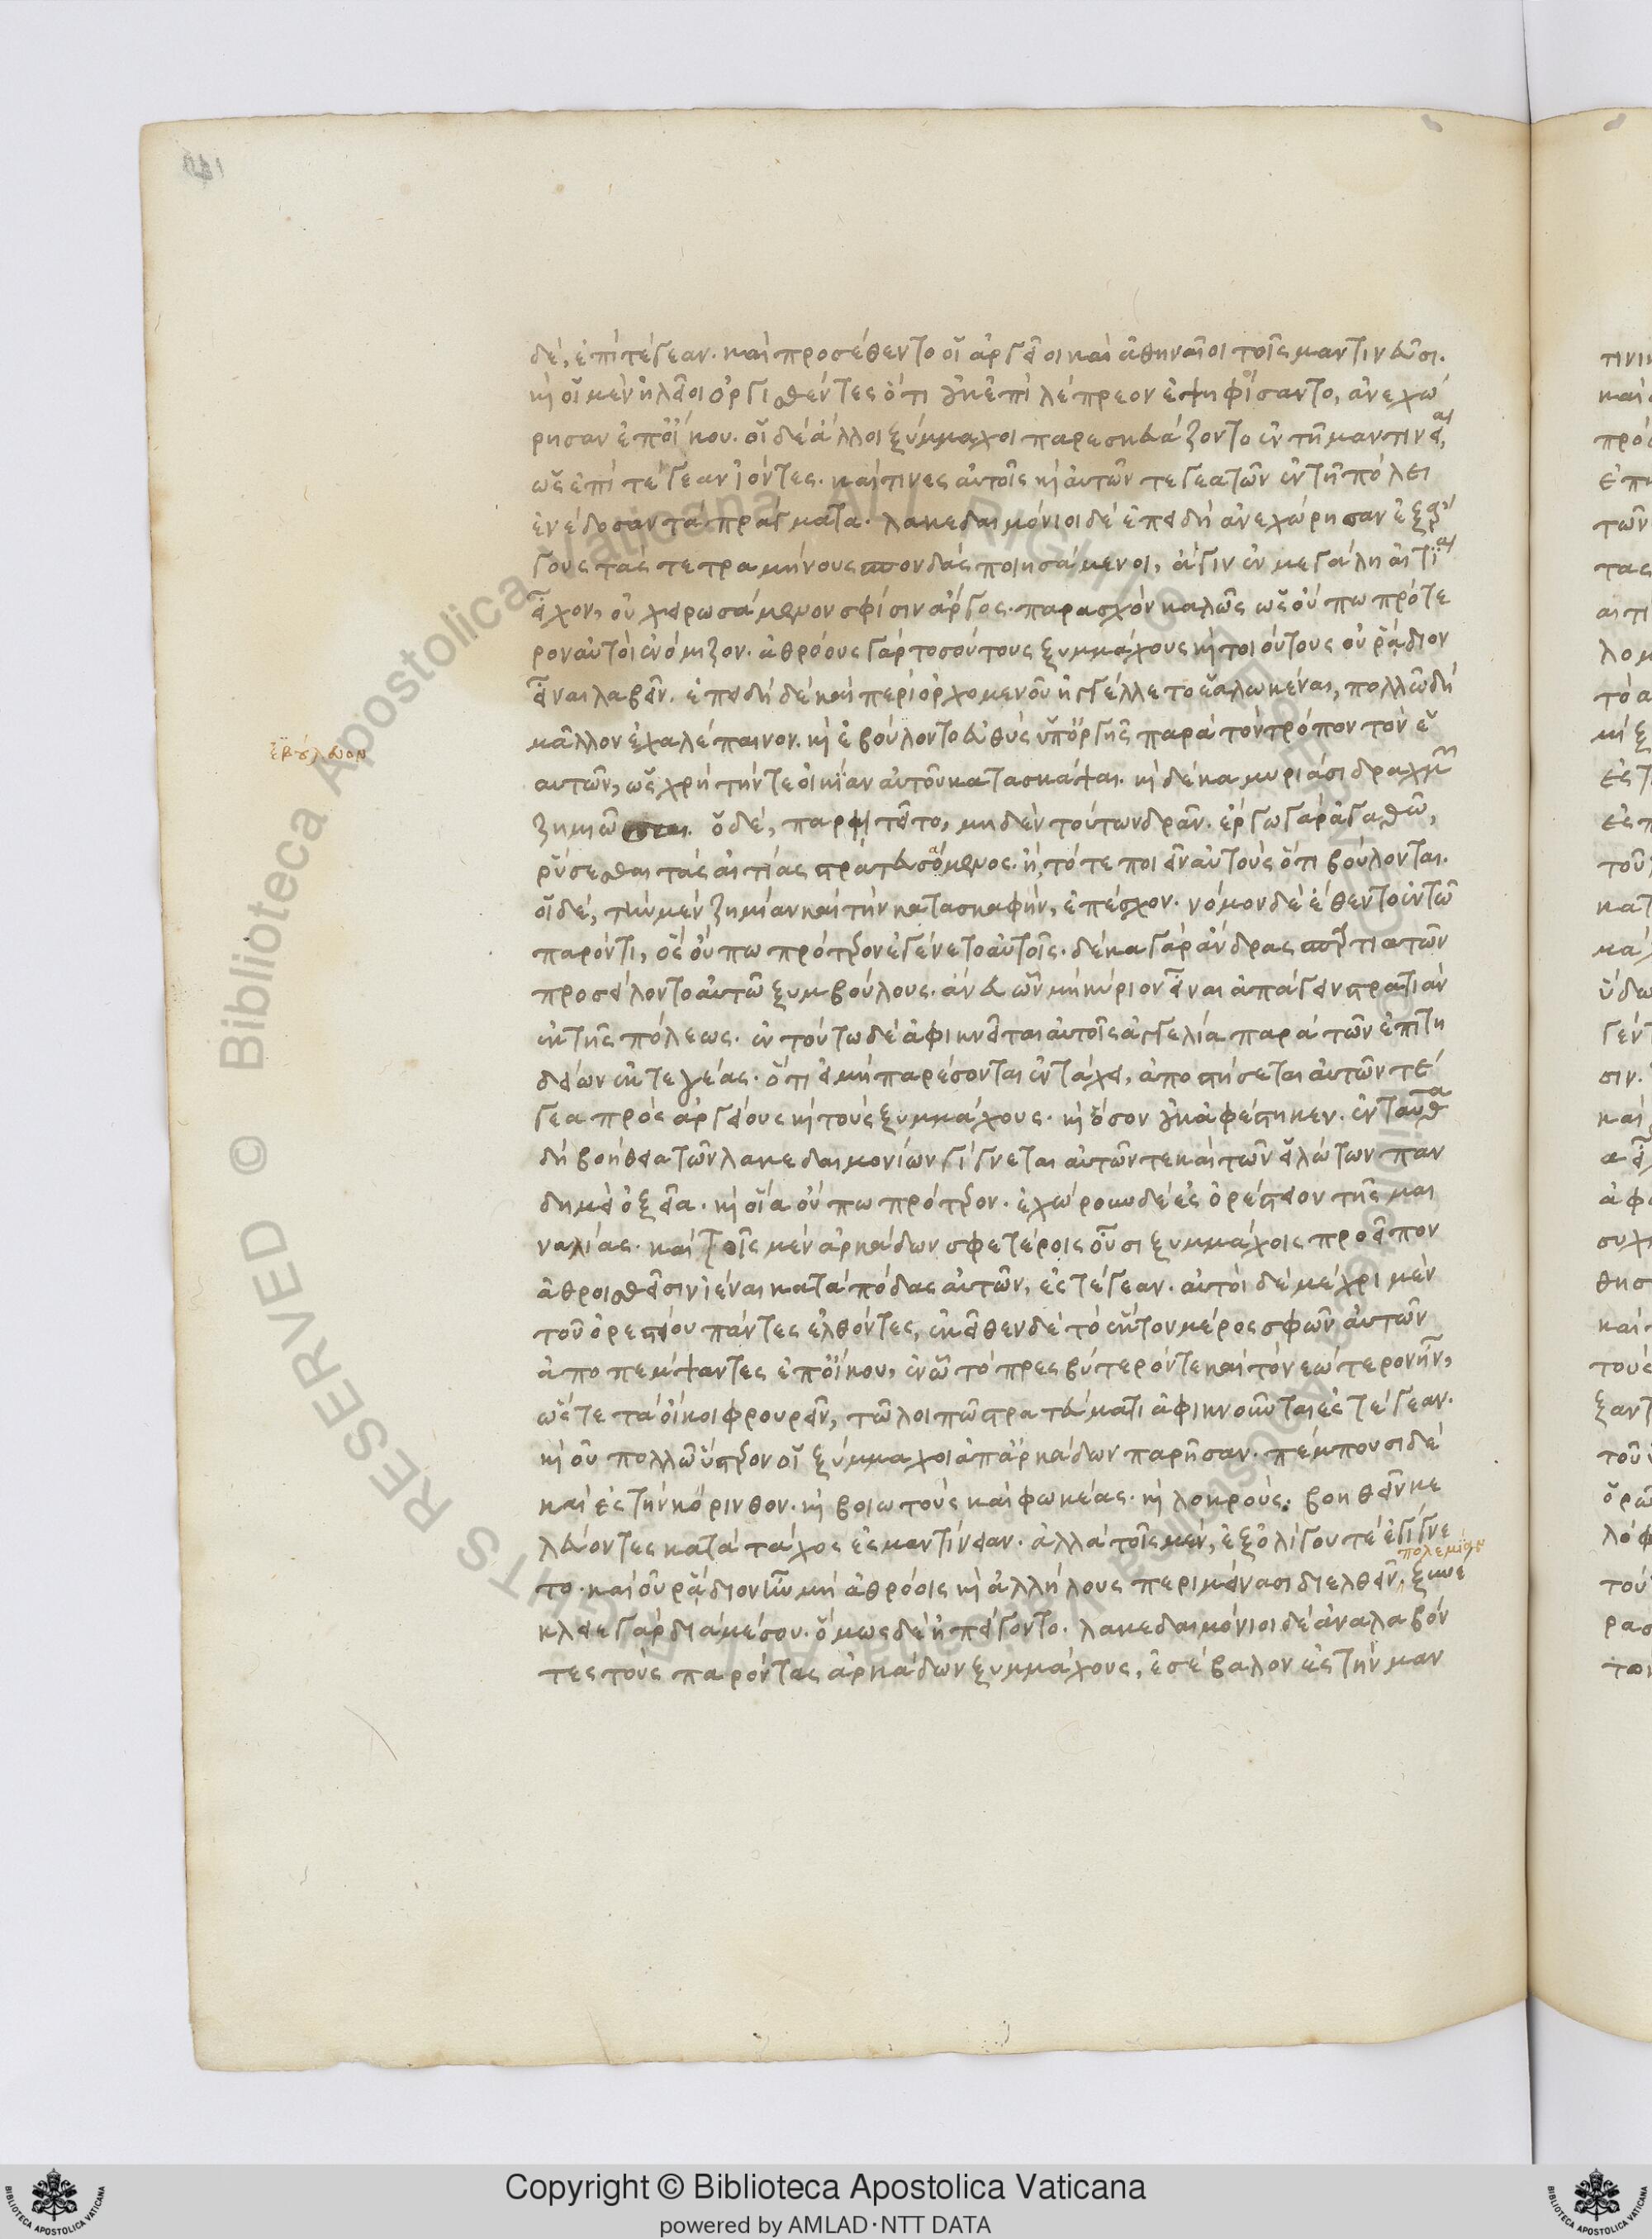 δέ, ἐπὶ τέγεαν. καὶ προσέθεντο οἱ ἀργεῖοι καὶ ἀθηναῖοι τοῖς μαντινεῦσι.
καὶ οἱ μὲν ἠλεῖοι ὀργισθέντες ὅτι οὐκ ἐπὶ λέπρεον ἐψηφίσαντο, ἀνεχώ
ρησαν ἐπ οἴκου. οἱ δὲ ἄλλοι ξύμμαχοι παρεσκευάζοντο ἐν τῇ μαντινείᾳ,
ὡς ἐπὶ τέγεαν ἰόντες. καί τινες αὐτοῖς καὶ αὐτῶν τεγεατῶν ἐν τῇ πόλει
ἐνέδοσαν τὰ πράγματα. λακεδαιμόνιοι δὲ ἐπειδὴ ἀνεχώρησαν ἐξ ἄρ
γους τὰς τετραμήνους σπονδὰς ποιησάμενοι, ἆγιν ἐν μεγάλῃ αἰτίᾳ
εἶχον, οὐ χειρωσάμενον σφίσιν ἄργος. παρασχὸν καλῶς ὡς οὔπω πρότε
ρον αὐτοὶ ἐνόμιζον. ἀθρόους γὰρ τοσούτους ξυμμάχους καὶ τοιούτους οὐ ῥᾴδιον
εἶναι λαβεῖν. ἐπειδὴ δὲ καὶ περὶ ὀρχομενοῦ ἠγγέλλετο ἑαλωκέναι, πολλῷ δὴ
μᾶλλον ἐχαλέπαινον. καὶ ἐβούλοντο εὐθὺς ὑπ ὀργῆς παρὰ τὸν τρόπον τὸν ἑ
ἐβούλευον
αυτῶν, ὡς χρὴ τήν τε οἰκίαν αὐτοῦ κατασκάψαι. καὶ δέκα μυριάσι δραχμῶν
ζημιῶσαι. ὁ δέ, παρῃτεῖτο, μηδὲν τούτων δρᾶν. ἔργῳ γὰρ ἀγαθῷ,
ῥύσεσθαι τὰς αἰτίας στρατευσάμενος. ἢ, τότε ποιεῖν αὐτοὺς ὅτι βούλονται.
οἱ δέ, τὴν μὲν ζημίαν καὶ τὴν κατασκαφήν, ἐπέσχον. νόμον δὲ ἔθεντο ἐν τῷ
παρόντι, ὃς οὔπω πρότερον ἐγένετο αὐτοῖς. δέκα γὰρ ἄνδρας σπαρτιατῶν
προσείλοντο αὐτῷ ξυμβούλους. ἄνευ ὧν μὴ κύριον εἶναι ἀπάγειν στρατιὰν
ἐκ τῆς πόλεως. ἐν τούτῳ δὲ ἀφικνεῖται αὐτοῖς ἀγγελία παρὰ τῶν ἐπιτη
δείων ἐκ τεγέας. ὅτι εἰ μὴ παρέσονται ἐν τάχει, ἀποστήσεται αὐτῶν τε
γέα πρὸς ἀργείους καὶ τοὺς ξυμμάχους. καὶ ὅσον οὐκ ἀφέστηκεν. ἐνταῦθα
δὴ βοήθεια τῶν λακεδαιμονίων γίγνεται αὐτῶν τε καὶ τῶν εἱλώτων παν
δημεὶ ὀξεῖα. καὶ οἵα οὔπω πρότερον. ἐχώρουν δὲ ἐς ὀρέστειον τῆς μαι
ναλίας. καὶ τοῖς μὲν ἀρκάδων σφετέροις οὖσι ξυμμάχοις προεῖπον
ἀθροισθεῖσιν ἰέναι κατὰ πόδας αὐτῶν, ἐς τέγεαν. αὐτοὶ δὲ μέχρι μὲν
τοῦ ὀρεστείου πάντες ἐλθόντες, ἐκεῖθεν δὲ τὸ ἕκτον μέρος σφῶν αὐτῶν
ἀποπέμψαντες ἐπ οἴκου, ἐν ᾧ τὸ πρεσβύτερόν τε καὶ τὸ νεώτερον ἦν,
ὥστε τὰ οἴκοι φρουρεῖν, τῷ λοιπῷ στρατεύματι ἀφικνοῦνται ἐς τέγεαν.
καὶ οὐ πολλῷ ὕστερον οἱ ξύμμαχοι ἀπ ἀρκάδων παρῆσαν. πέμπουσι δὲ
καὶ ἐς τὴν κόρινθον. καὶ βοιωτοὺς καὶ φωκέας. καὶ λοκρούς. βοηθεῖν κε
λεύοντες κατὰ τάχος ἐς μαντίνειαν. ἀλλὰ τοῖς μέν, ἐξ ὀλίγου τε ἐγίγνε
πολεμίαν
το. καὶ οὐ ῥᾴδιον ἦν μὴ ἀθρόοις καὶ ἀλλήλους περιμείνασι διελθεῖν. ξυνέ
κλειε γὰρ διὰ μέσου. ὅμως δὲ ἠπείγοντο. λακεδαιμόνιοι δὲ ἀναλαβόν
τες τοὺς παρόντας ἀρκάδων ξυμμάχους, ἐσέβαλον ἐς τὴν μαν
Copyright © Biblioteca Apostolica Vaticana
powered by AMLAD·NTT DATA